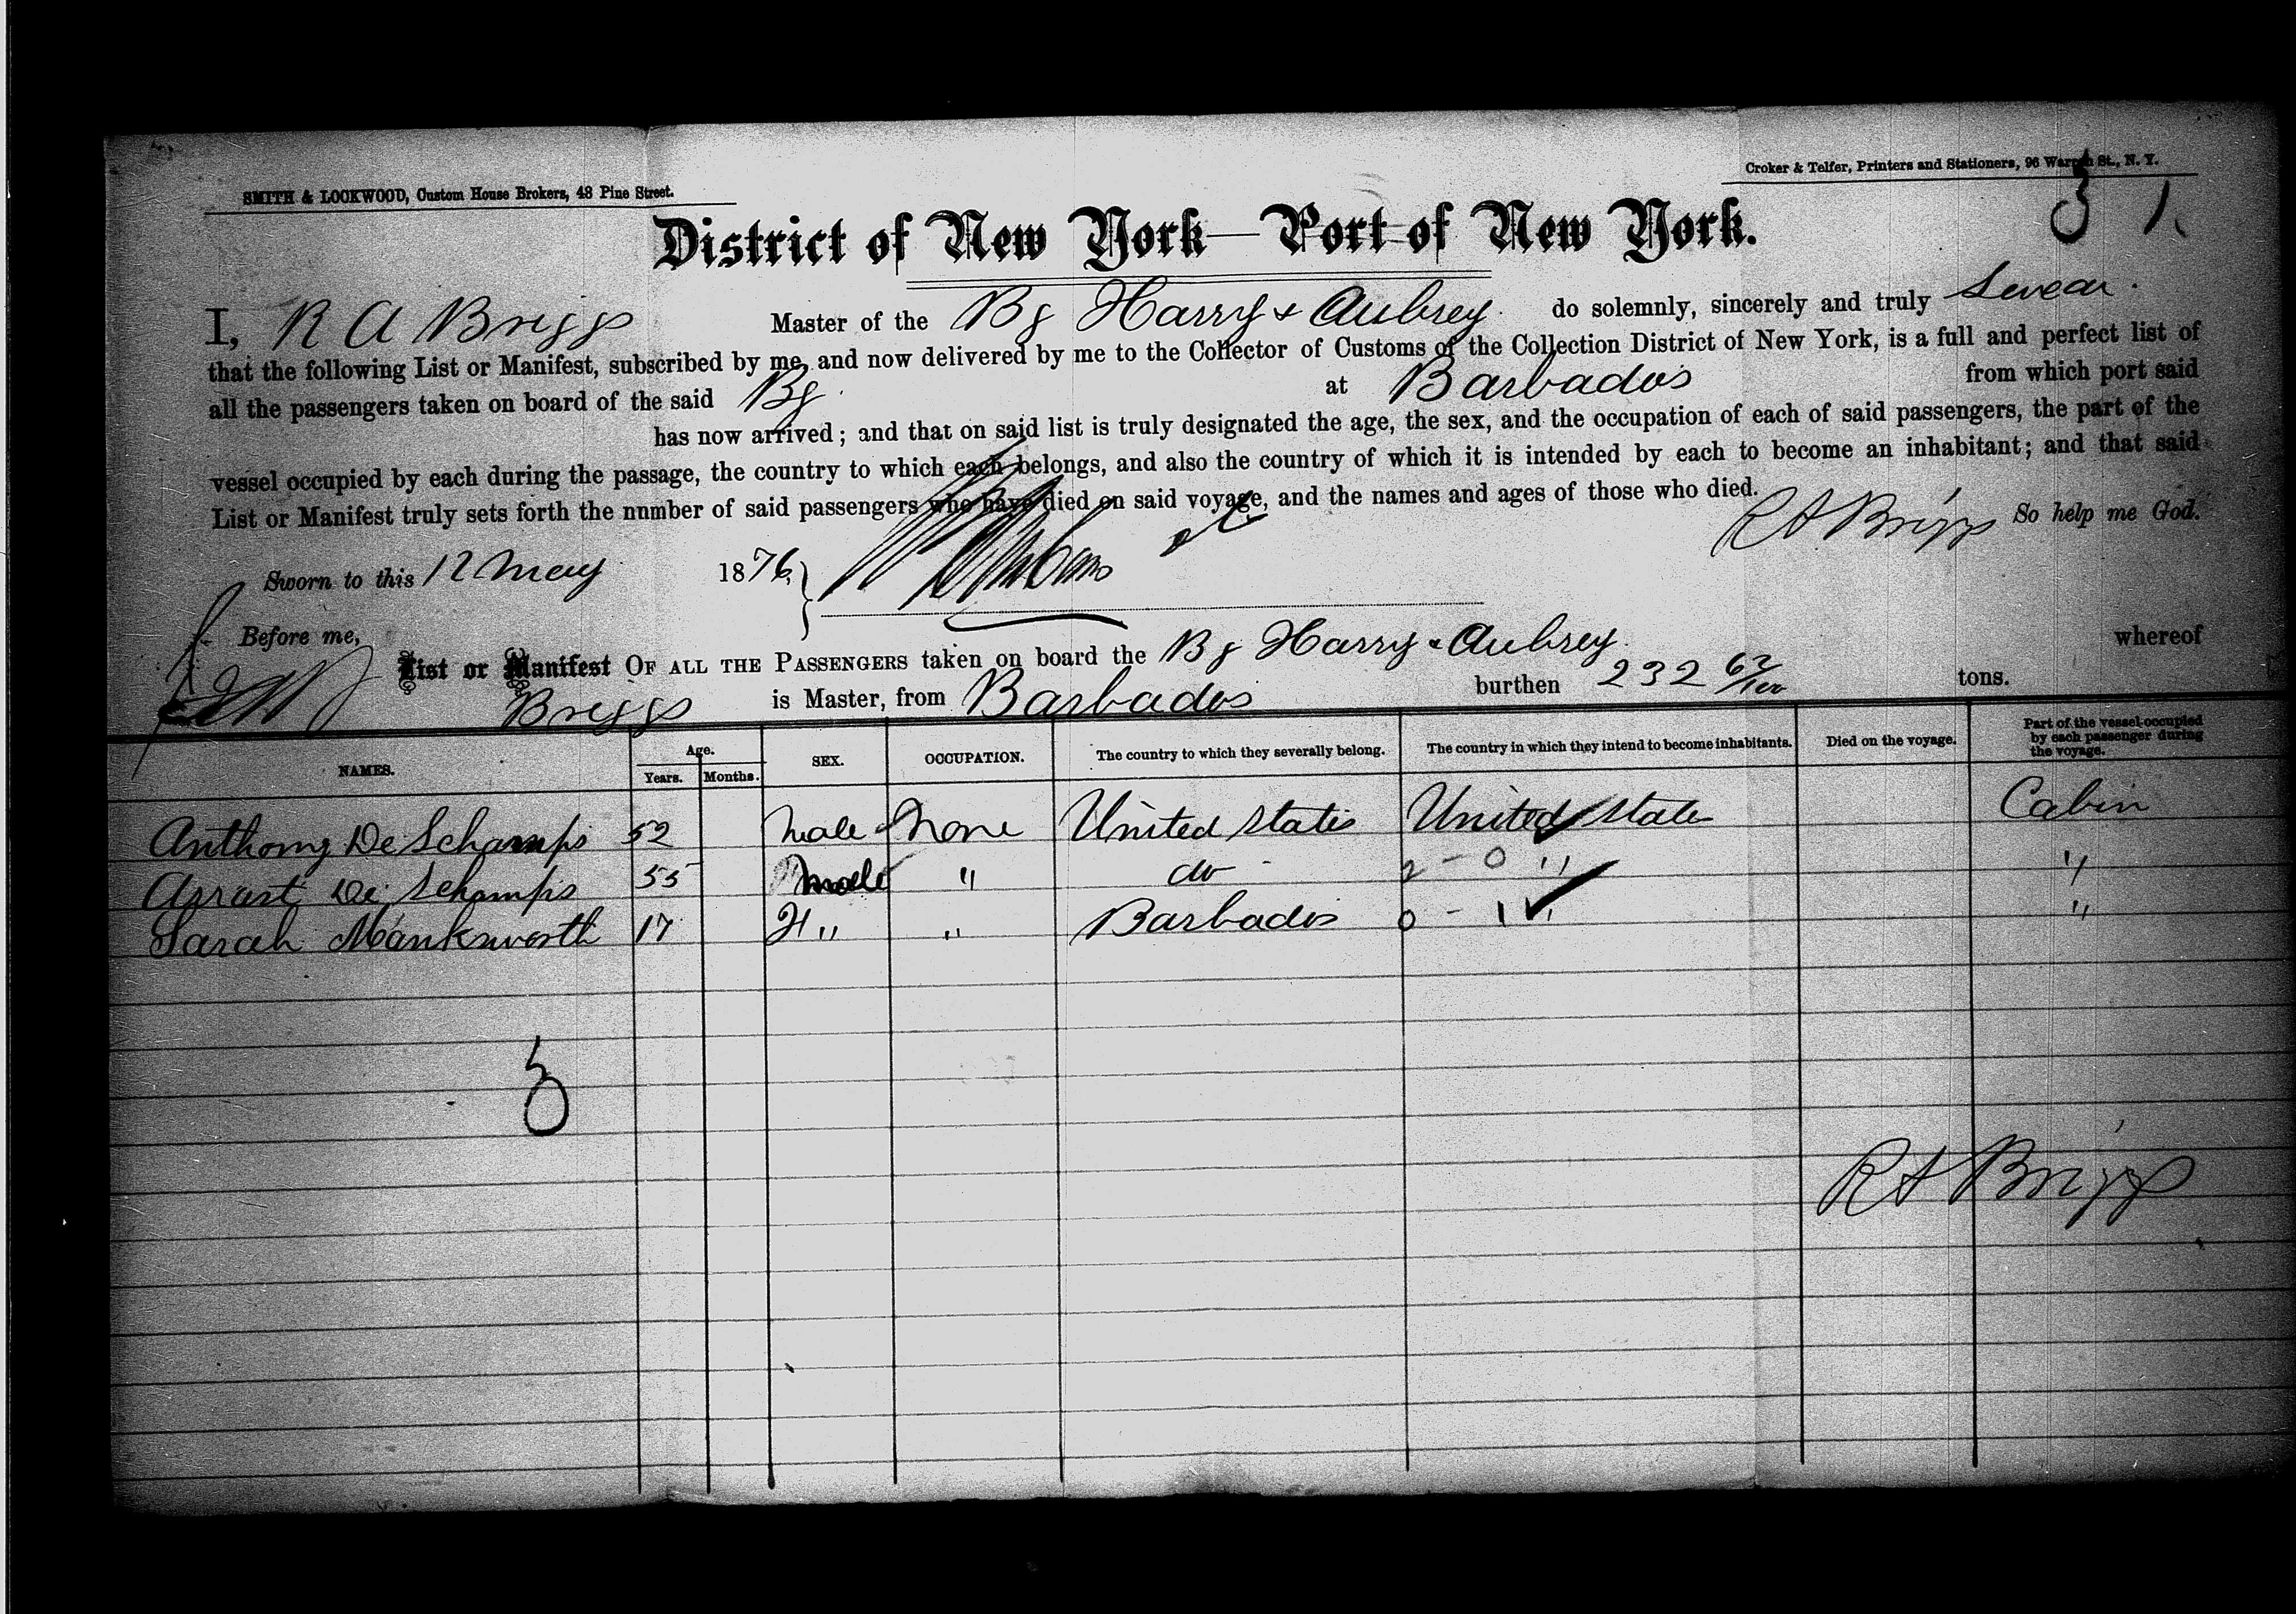 SMITH & LOCKWOOD, Custom House Brokers, 48 Pine Street.
Croker & Telfer, Printers and Stationers, 96 Warren St., N. Y.
3 1
District of New York—Port of New York.
I, R A Briggs Master of the Bg Harry & Aubrey do solemnly, sincerely and truly Swear.
that the following List or Manifest, subscribed by me, and now delivered by me to the Collector of Customs of the Collection District of New York, is a full and perfect list of
all the passengers taken on board of the said Bg at Barbados from which port said
has now arrived; and that on said list is truly designated the age, the sex, and the occupation of each of said passengers, the part of the
vessel occupied by each during the passage, the country to which each belongs, and also the country of which it is intended by each to become an inhabitant; and that said
List or Manifest truly sets forth the nnmber of said passengers who have died on said voyage, and the names and ages of those who died.
R A Briggs So help me God.
Sworn to this 12 May 1876.
Before me,
List or Manifest OF ALL THE PASSENGERS taken on board the Bg Harry & Aubrey whereof
Briggs is Master, from Barbados burthen 232 62/100 tons.
NAMES. Age. Years. Months. SEX. OCCUPATION. The country to which they severally belong. The country in which they intend to become inhabitants. Died on the voyage. Part of the vessel occupied by each passenger during the voyage.
Anthony De Schamps 52 Male None United States United States Cabin
De Schamps 55 Male " do 2 - 0 " "
Sarah Manksworth 17 F " " Barbados 0 - 1 " "
3
R A Briggs